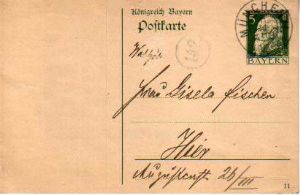 Königreich Bayern
Postkarte
MÜNCHEN
5
BAYERN
Frau Gisela Fischer
Hier
Augustenstr 26/III
11